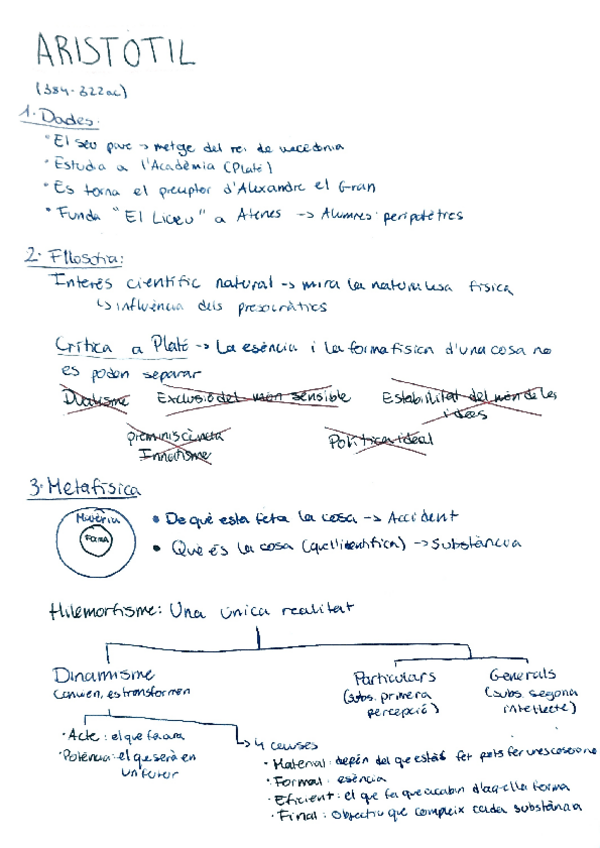 ARISTÒTIL
(384-322ac)
1. Dades.
• El seu pare → metge del rei de macedònia
• Estudia a l'Acadèmia (Plató)
• Es torna el preceptor d'Alexandre el Gran
• Funda "El Liceu" a Atenes → Alumnes: peripatètics
2. Filosofia:
Interès científic natural → mira la naturalesa física
↳ influència dels presocràtics
Crítica a Plató → La esència i la forma física d'una cosa no
es poden separar
Dualisme Exclusió del món sensible Estabilitat del món de les
idees
Innatisme Política ideal
3. Metafísica
Matèria • De què esta feta la cosa → Accident
FORMA • Què és la cosa (que l'identifica) → Substància
Hilemorfisme: Una única realitat
Dinamisme Particulars Generals
canvien, es transformen (subs. primera (subs. segona
percepció) intel·lecte)
• Acte: el que fa ara
• Potència: el que serà en
un futur
↳ 4 causes
• Material: depèn del que estàs fet pots fer unes coses o no
• Formal: esència
• Eficient: el que fa que acabin d'aquella forma
• Final: Objectiu que compleix cada substància